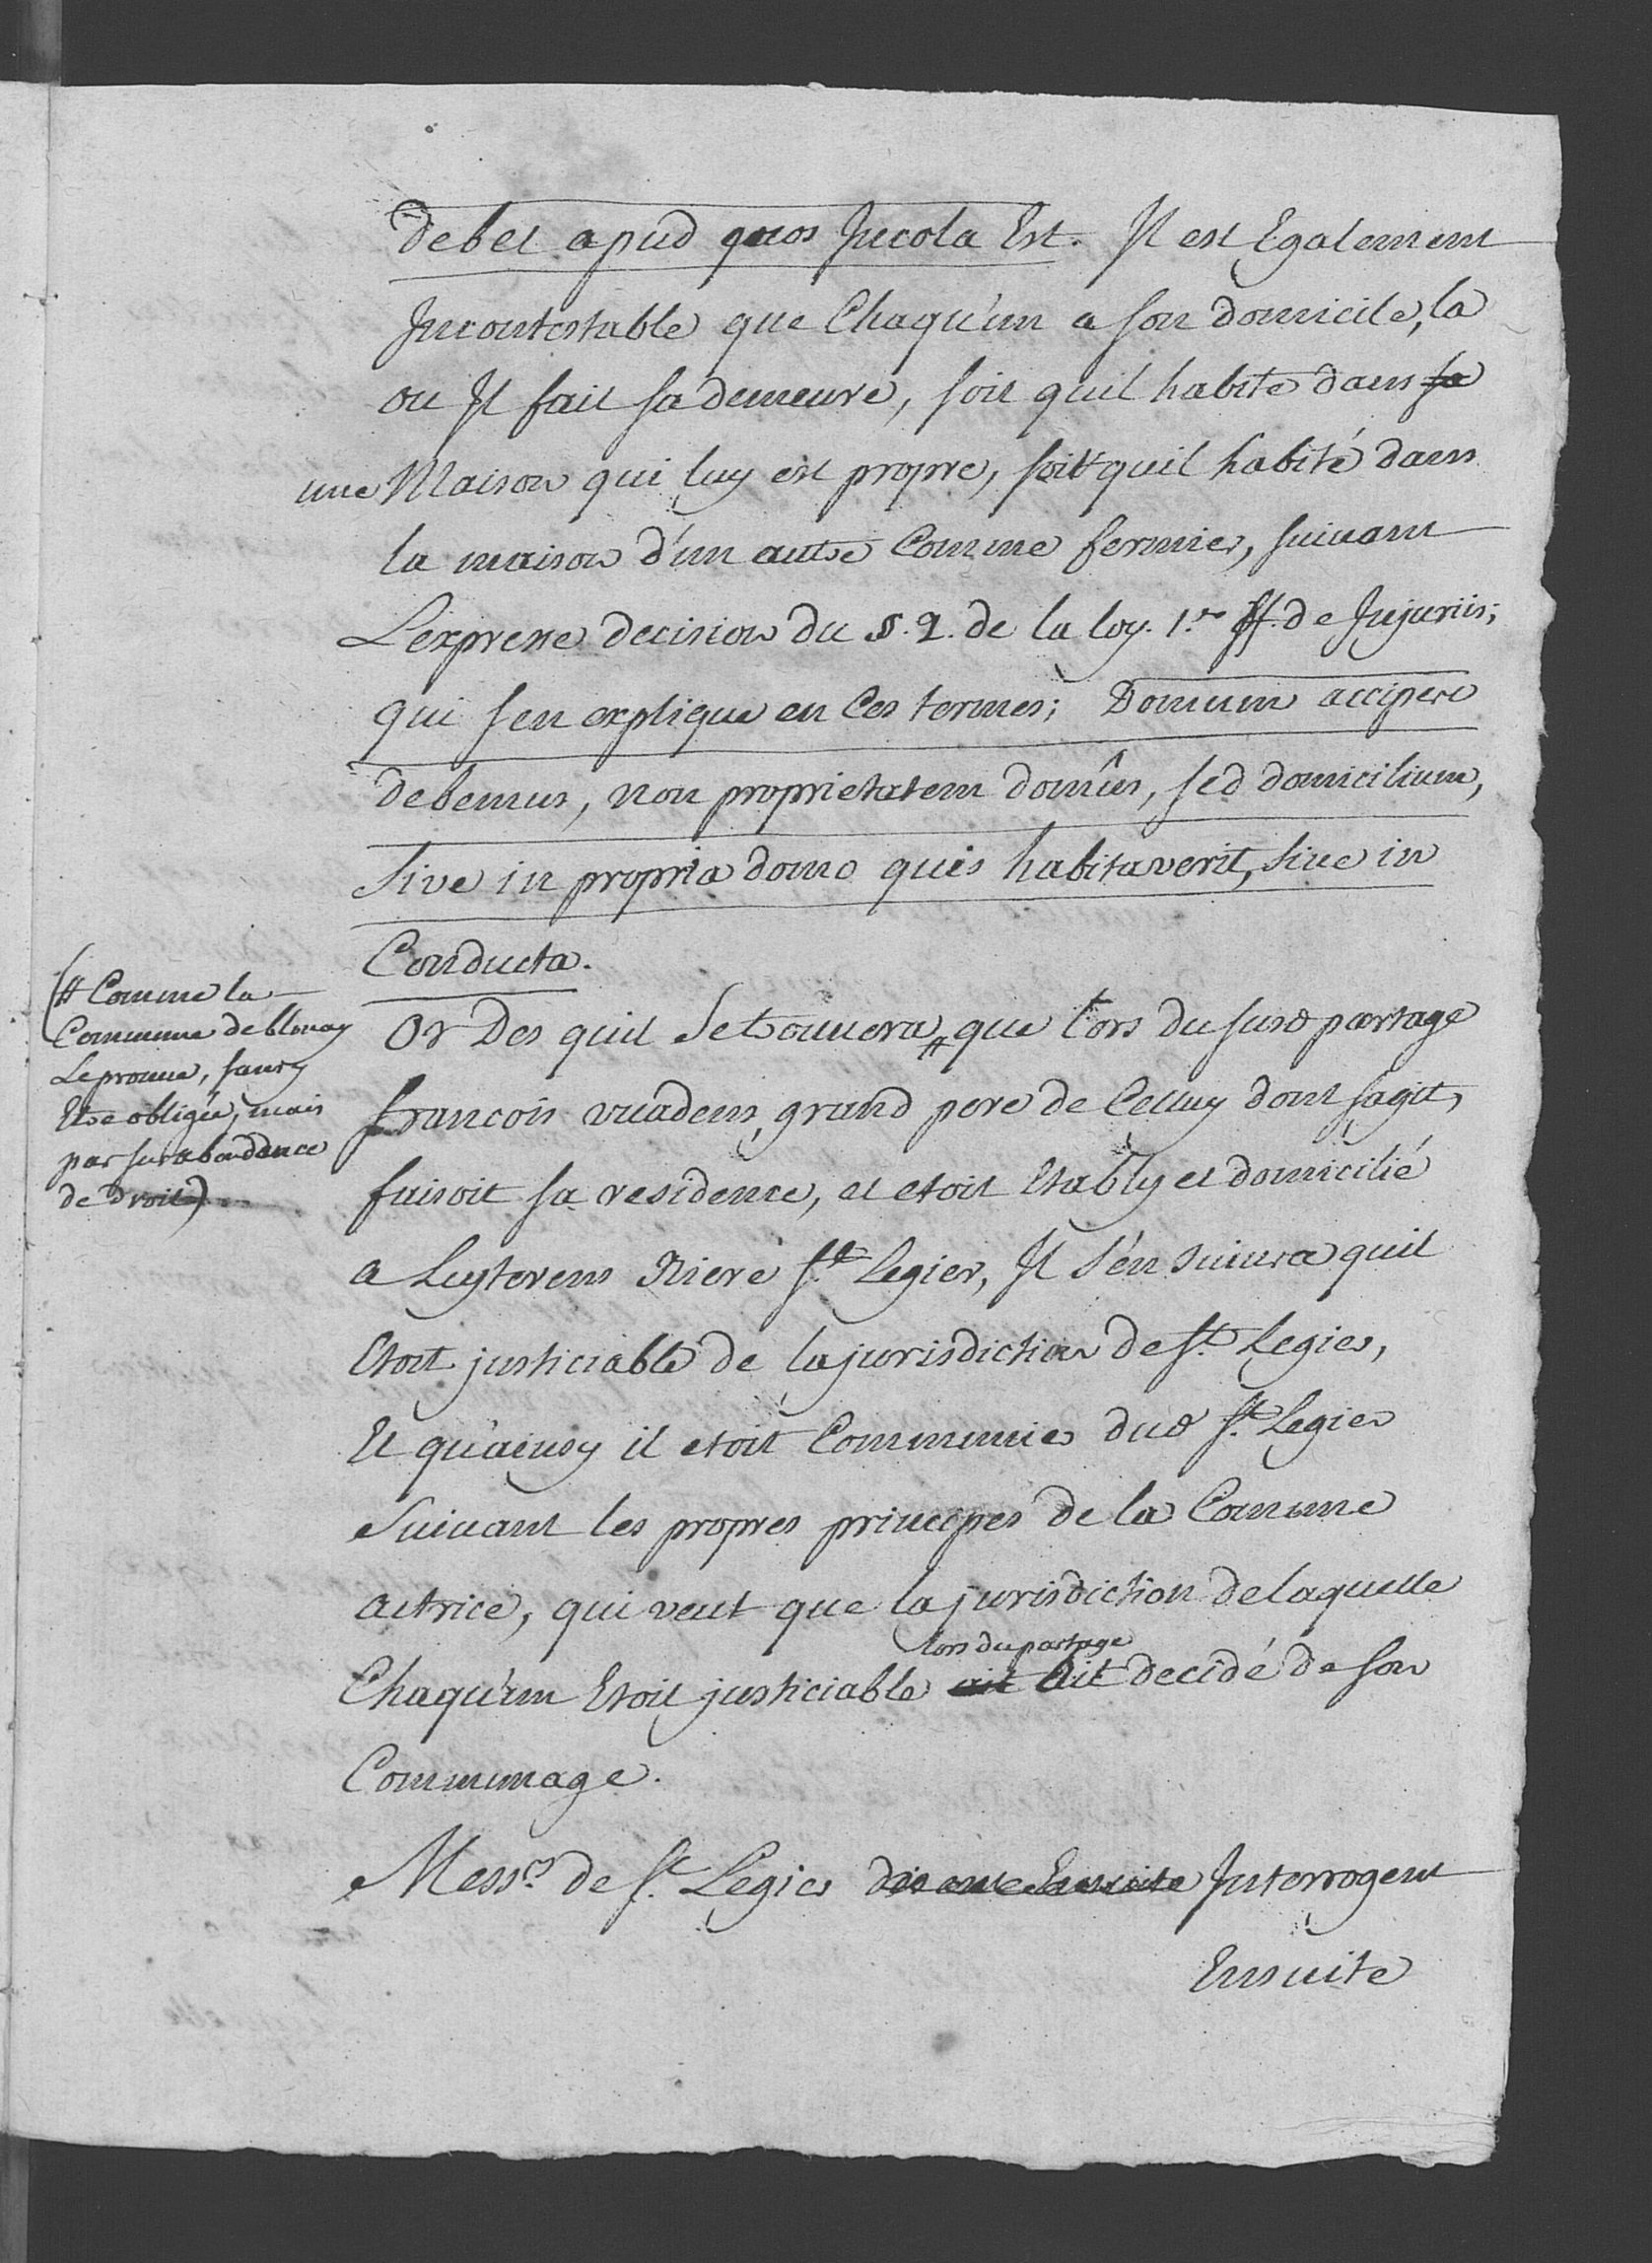 debet apud quos Incola Est. Il est Egalement
Incontestable que Chaqu'un a son domicile, la
ou Il fait sa demeure, soit quil habite dans sa
une Maison qui luy est propre, soit quil habité dans
la maison d'un autre Comme fermier, suivant
L'expresse decision du §. 2. de la loy. 1.re ff. de Injuriis;
qui s'en explique en Ces termes; Domum accipere
debemus, non proprietatem domûs, sed domicilium,
Sive in propria domo quis habitaverit, sive in
Conducta.
(# Comme la
Commune de blonay
Le prouve, sans y
Etre obligée, mais
par surabondance
de droit)
Or Des quil Se trouvera # que lors du susd partage
françois vuadens, grand pere de Celluy dont s'agit,
faisoit sa residence, et etoit Etably et domicilié
a Luytorens Riere St. Legier, Il s'en suivra quil
Etoit justiciable de la jurisdiction de St. Legier,
Et qu'ainsy il etoit Communier dud St. Legier
Suivant les propres principes de la Comune
actrice, qui veut que la jurisdiction de laquelle
lors du partage
Chaqu'un Etoit justiciable ait Ait decidé de son
Communage.
Mess.rs de St. Legier disent Ensuite Interrogent
Ensuite